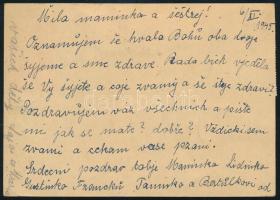 Mila maminka a sěstrej! 6/XI. 1945.
Oznamujem še hvala Bohů oba dvoje
šyjeme a sme zdrave. Rada bich vyděla
še Vy šyjěte a coje zvamy a še stoje zdravě.
Pozdravujem vaz všechnich a pište
mi jak se mate? dobře? Vzdicki sem
zvami a čekam vase psani.
Srdecni pozdrav tobje Maminko Lidinko
Gustinko Francků Taninko a Baružkovi od